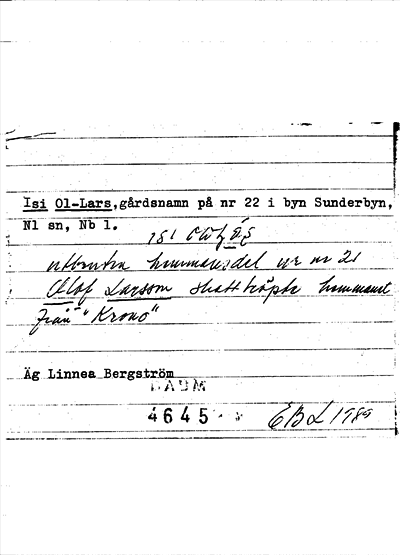 Isi Ol-Lars, gårdsnamn på nr 22 i byn Sunderbyn,
Nl sn, Nb l.
isi
hemmansdel ur nr 21
Olof Larsson skatteköpte hemmanet
från "Krono"
Äg Linnea Bergström
DAUM
4645
EBL 1989